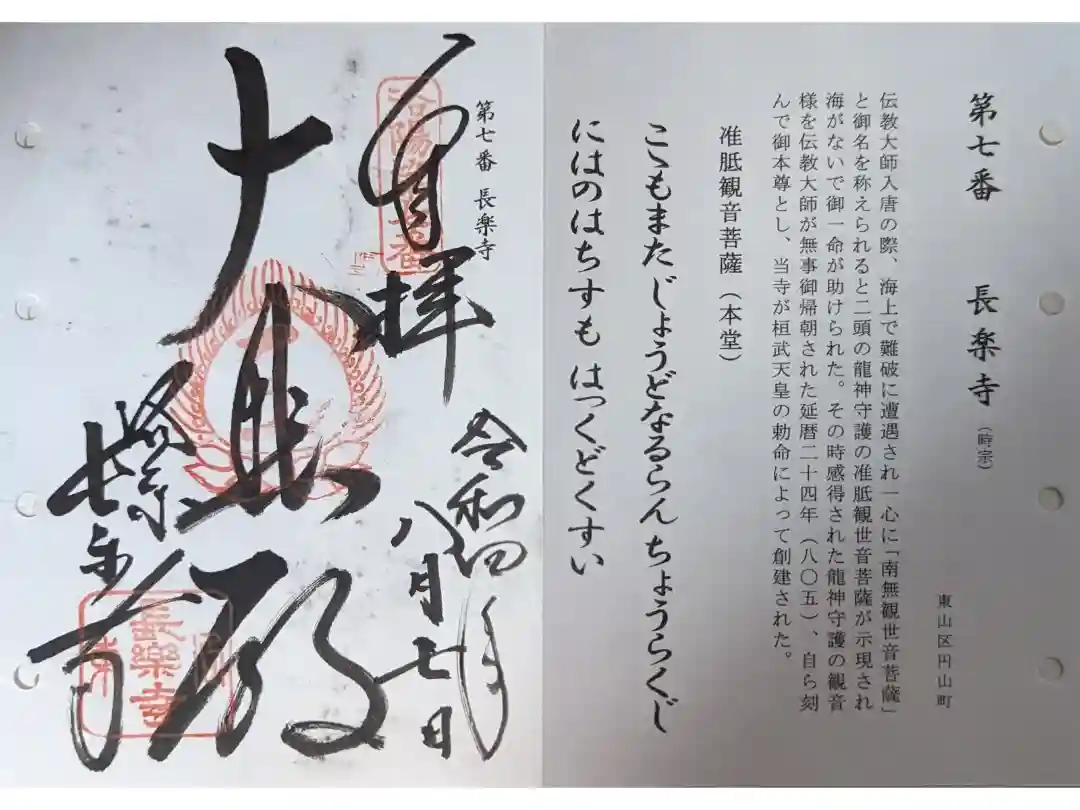 第七番 長楽寺（時宗）
東山区円山町
伝教大師入唐の際、海上で難破に遭遇され一心に「南無観世音菩薩」
と御名を称えられると二頭の龍神守護の准胝観世音菩薩が示現され
海がないで御一命が助けられた。その時感得された龍神守護の観音
様を伝教大師が無事御帰朝された延暦二十四年（八〇五）、自ら刻
んで御本尊とし、当寺が桓武天皇の勅命によって創建された。
准胝観音菩薩（本堂）
こゝもまた じょうどなるらん ちょうらくじ
にはのはちすも はっくどくすい
第七番 長楽寺
奉拝
令和四年
八月七日
大悲殿
長樂寺